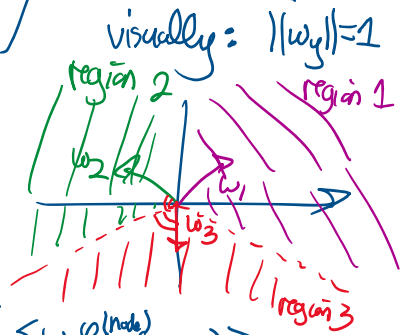 visually: ||w_y||=1
region 2
region 1
w_2
w_1
w_3
region 3
(node)